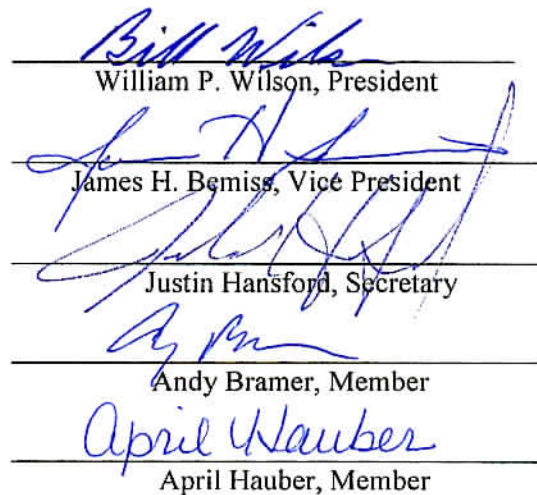 Bill Wils
William P. Wilson, President
James H. Bemiss, Vice President
Justin Hansford, Secretary
Andy Bramer, Member
April Hauber
April Hauber, Member